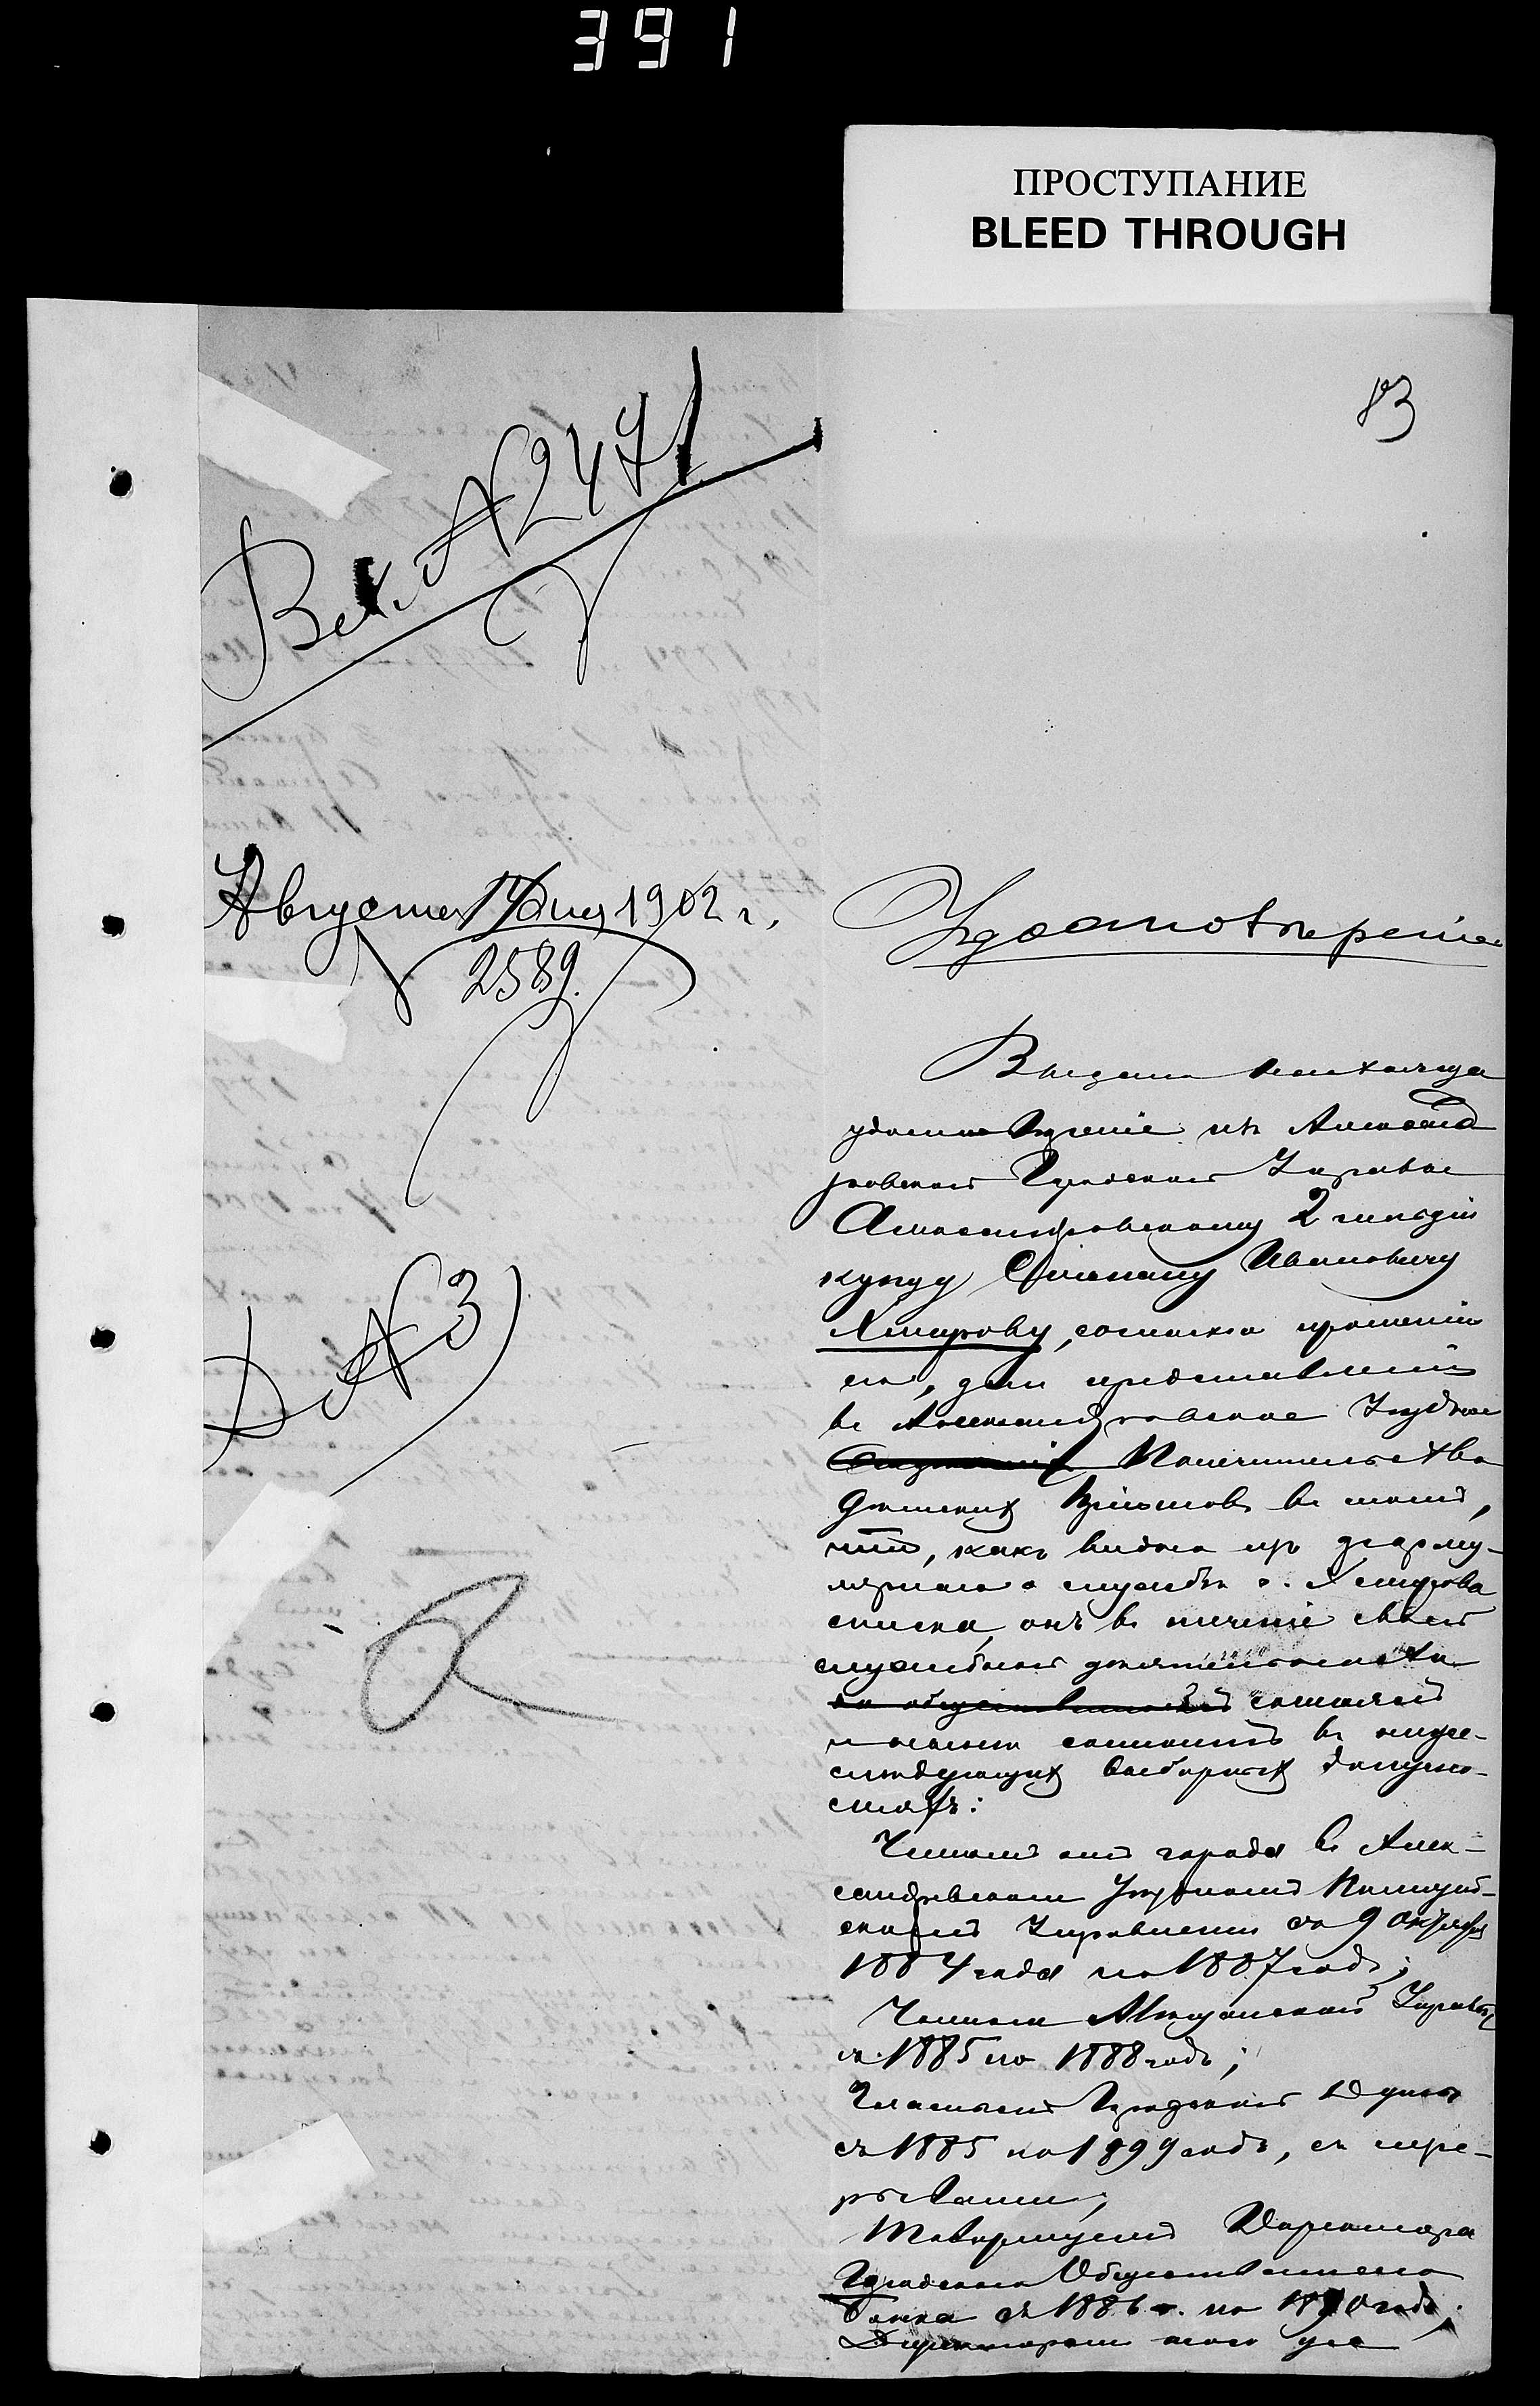 391
ПРОСТУПАНИЕ
BLEED THROUGH
83
Вх. № 2471
Августа 17 дня 1902 г.
2589.
№ 3)
Удостовѣреніе
Выдано
удостовѣреніе изъ Александ
ровской Городской Управы
Александровскому 2 гильдіи
купцу Степану Ивановичу
Хмирову, согласно прошенію
его, для представленія
въ Александровское Уѣздное
Попечительство
Дѣтскихъ Пріютовъ въ томъ,
что, какъ видно изъ формуляр
о службѣ г. Хмирова
списка, онъ въ теченіе своей
служебной дѣятельности
состоялъ
и въ ниже-
слѣдующихъ выборныхъ должно-
стяхъ:
Членомъ отъ города въ Алек-
сандровскомъ Уѣздномъ Полицей-
скомъ Управленіи съ 9 Октября
1884 года по 1887 годъ;
Членомъ Мѣщанской Управы
съ 1885 по 1888 годъ;
Гласнымъ Городской Думы
съ 1885 по 1899 годъ, съ пере-
рывами;
Товарищемъ Директора
Городского Общественнаго
Банка съ 1886 г. по 1890 годъ;
Директоромъ того же